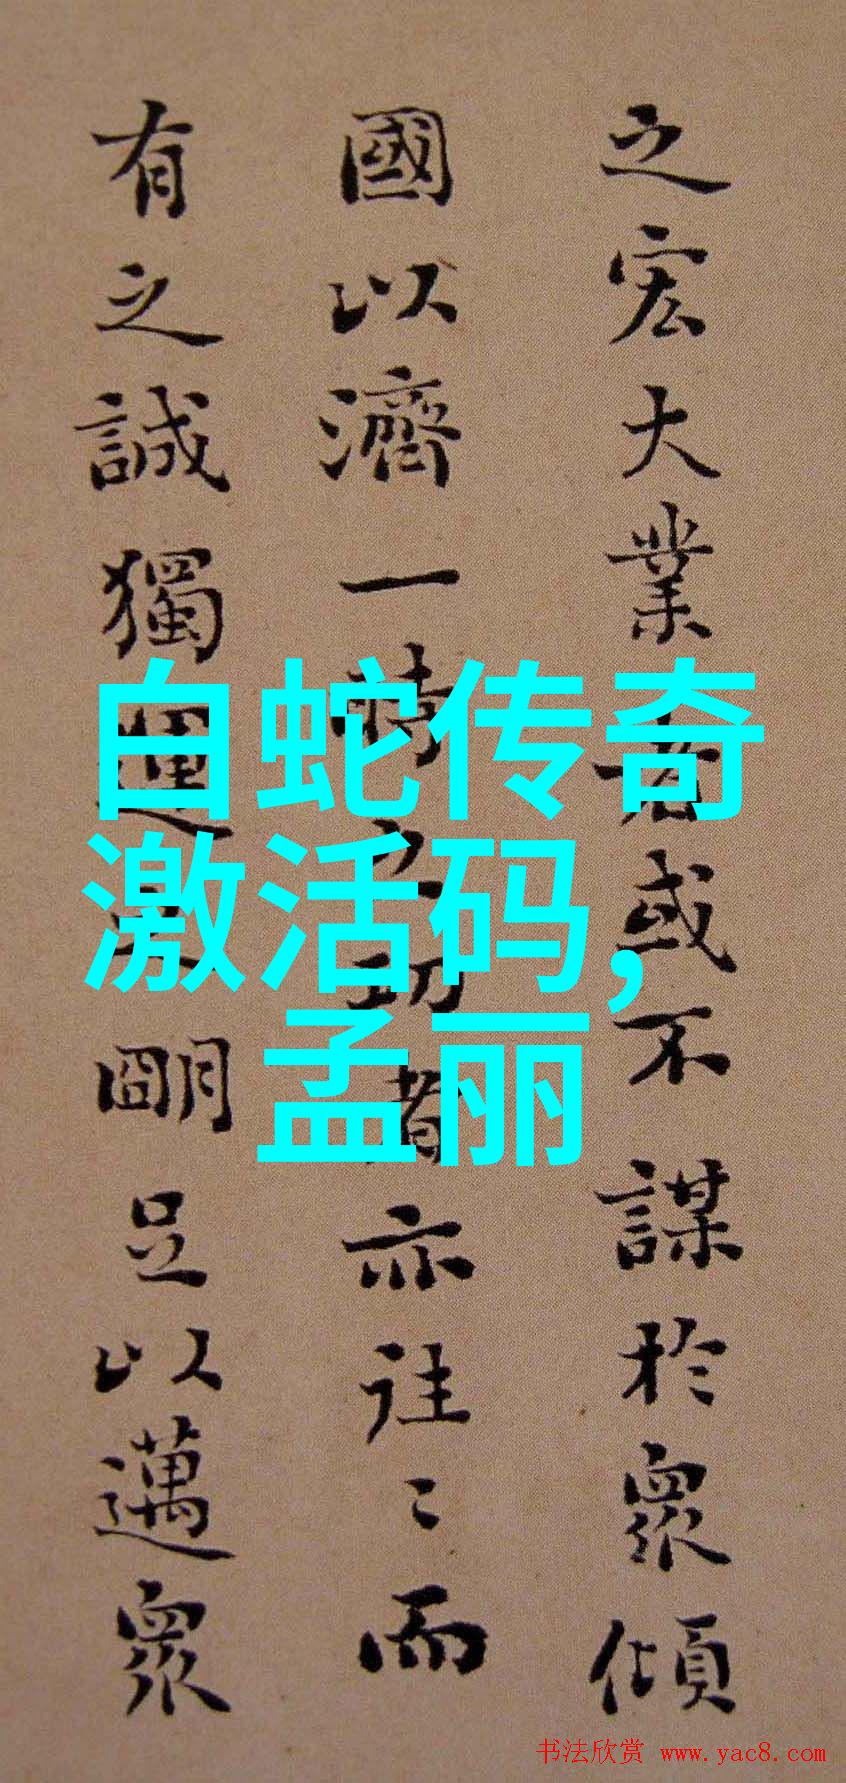 之宏大業者或不謀於衆傾
國以濟一時之功者亦往〻而
有之誠獨運之明足以邁衆
白蛇传奇
激活码,
孟丽
书法欣赏 www.yac8.com